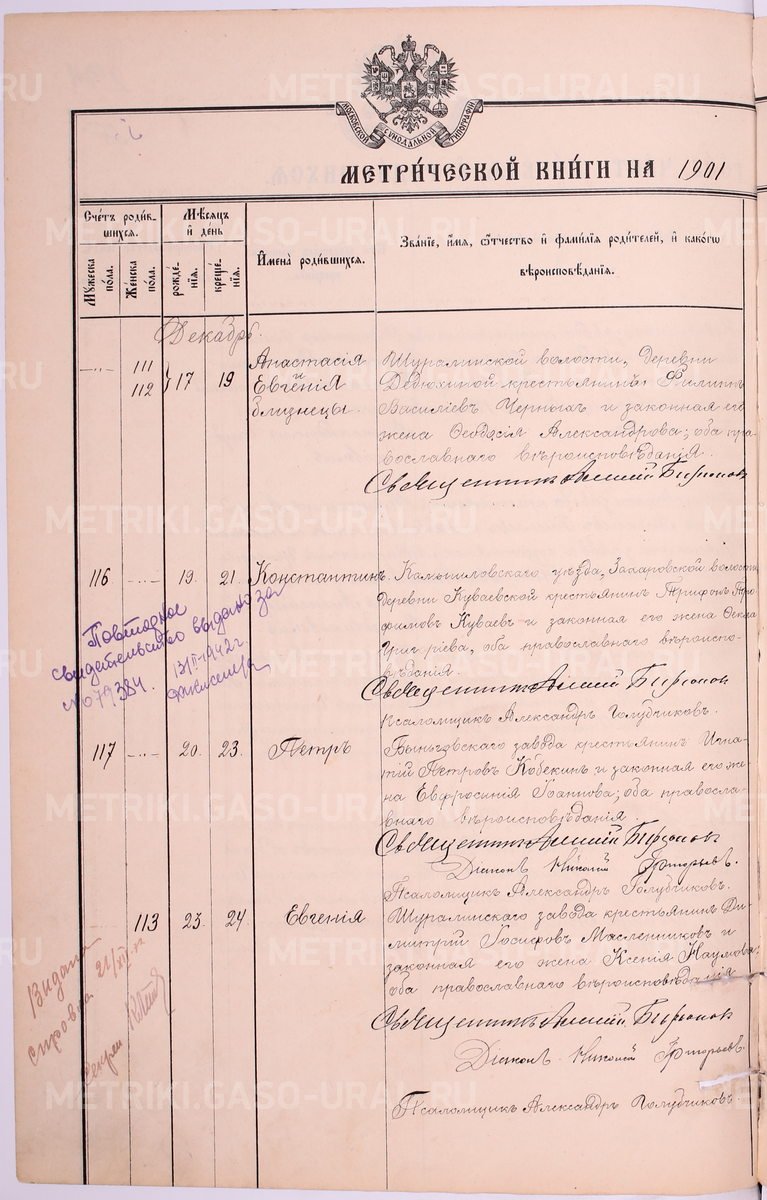 МОСКОВСКОЙ СѴНОДАЛЬНОЙ ТИПОГРАФІИ
МЕТРИ́ЧЕСКОЙ КНИ́ГИ НА 1901
Счетъ роди́вшихся.
Мѣсяцъ и҆ де́нь
И҆мена̀ роди́вшихся.
Зва́нїе, и҆́мя, ѻ҆́тчество и҆ фами́лїя роди́телей, и҆ како́гѡ
вѣроисповѣ́данїя.
Мꙋ́жеска по́ла.
Же́нска по́ла.
рожде́нїя.
креще́нїя.
Декабрь.
111
112
17
19
Анастасія
и
Евгенія
близнецы.
Шуралинской волости, деревни
Дедюхиной крестьянинъ Филиппъ
Василіевъ Черныхъ и законная его
жена Ѳеодосія Александрова; оба пра-
вославнаго вѣроисповѣданія.
Священникъ Бирюковъ
116
19.
21.
Константинъ.
Камышловскаго уѣзда, Захаровской волости
деревни Куваевской крестьянинъ Трифонъ Тро-
фимовъ Куваевъ и законная его жена Ѳекла
Григорiева, оба православнаго вѣроиспо-
вѣданія.
Священникъ Бирюковъ
Псаломщикъ Александръ Голубчиковъ.
Повторное
свидетельство выдано за
№ 079384. 13/II-1942 г.
117
20.
23.
Петръ
Быньговскаго завода крестьянинъ Игна-
тій Петровъ Кобекинъ и законная его же-
на Евфросинія Іоаннова; оба правосла-
внаго вѣроисповѣданія.
Священникъ Бирюковъ
Діаконъ Николай Григорьевъ.
Псаломщикъ Александръ Голубчиковъ.
113
23.
24.
Евгенія
Шуралинскаго завода крестьянинъ Ди-
митрій Іосифовъ Масленниковъ и
законная его жена Ксенія Наумова;
оба православнаго вѣроисповѣданія
Священникъ Бирюковъ
Діаконъ Николай Григорьевъ.
Псаломщикъ Александръ Голубчиковъ.
METRIKI.GASO-URAL.RU